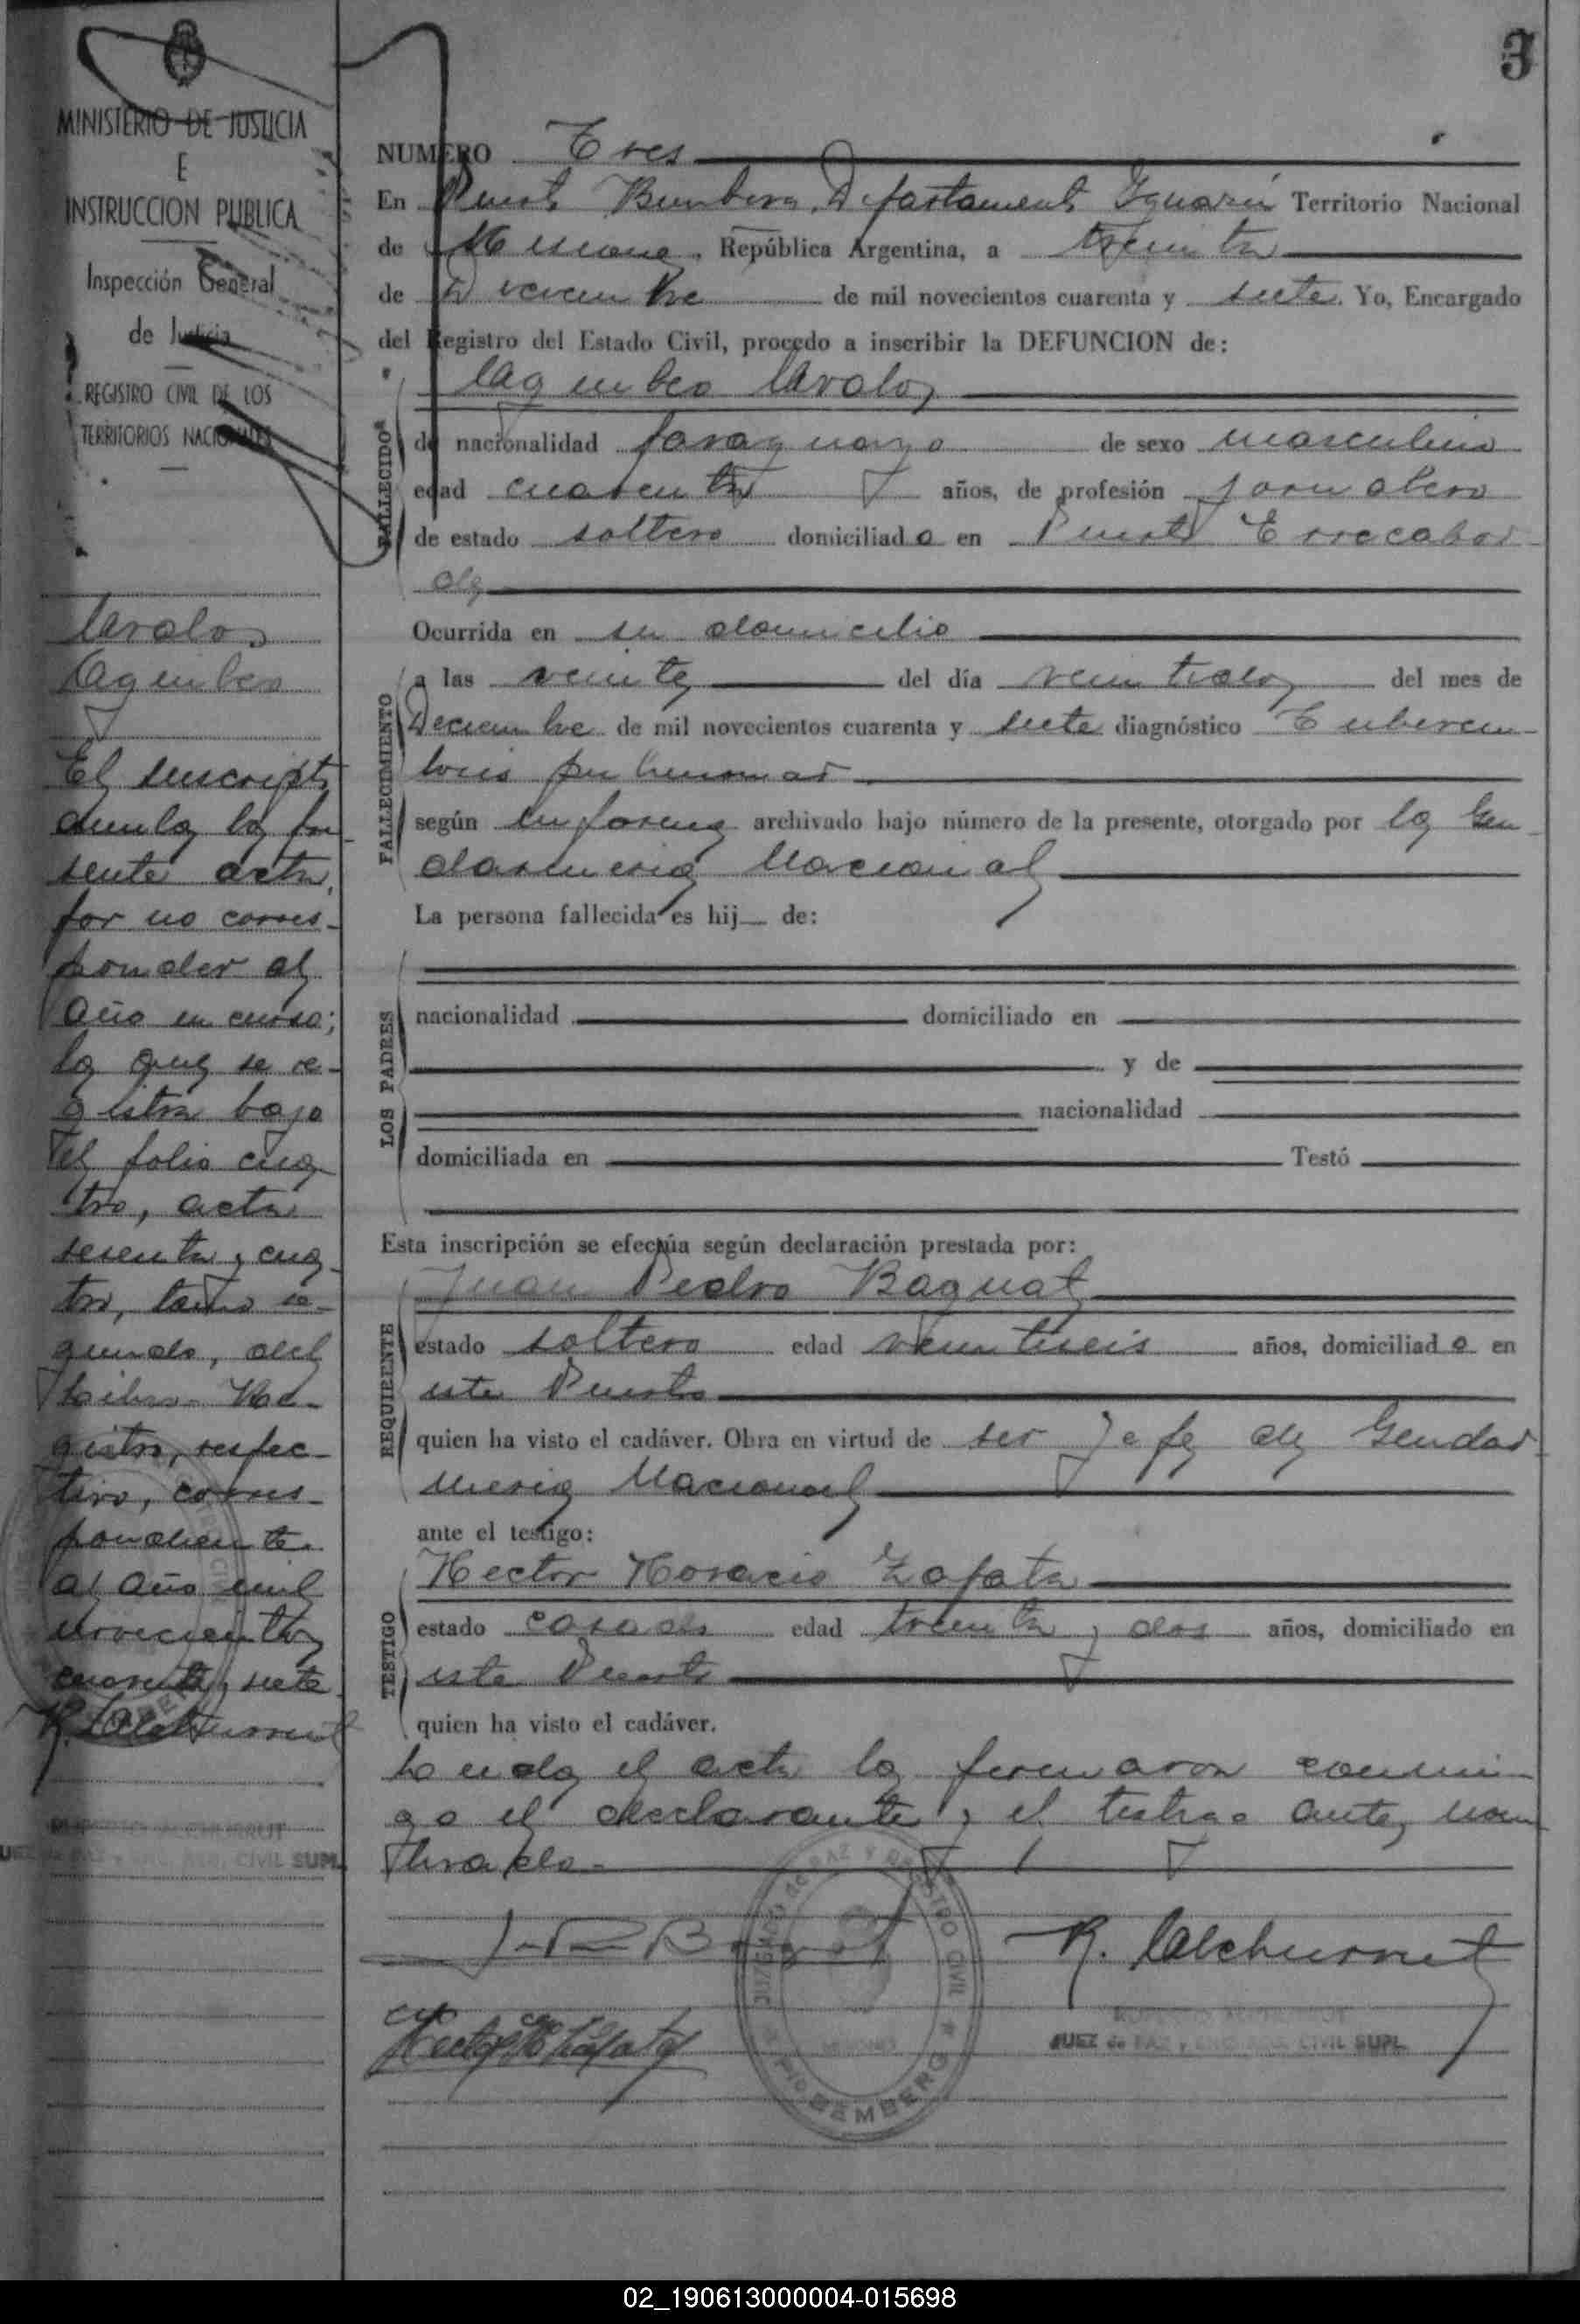 3
MINISTERIO DE JUSTICIA
E
INSTRUCCION PUBLICA
Inspección General
de Justicia
REGISTRO CIVIL DE LOS
TERRITORIOS NACIONALES
Avalos
Aguileo
El suscripto
anula la pre
sente acta,
por no corres-
ponder al
año en curso;
la que se re-
gistra bajo
el folio cua-
tro, acta
sesenta y cua-
tro, tomo se-
gundo, del
Libro- Re-
gistro, respec-
tivo, corres-
pondiente
al año mil
novecientos
cuarenta y siete
R. Alchurrut
RUPERTO ALCHURRUT
JUEZ de PAZ y ENC. REG. CIVIL SUPL.
NUMERO Tres
En Puerto Bemberg, Departamento Iguazú Territorio Nacional
de Misiones, República Argentina, a treinta
de Diciembre de mil novecientos cuarenta y siete. Yo, Encargado
del Registro del Estado Civil, procedo a inscribir la DEFUNCION de:
Avalos
FALLECIDO
de nacionalidad paraguaya de sexo masculino
edad cuarenta años, de profesión jornalero
de estado soltero domiciliado en Puerto Errecabor
de
Ocurrida en su domicilio
FALLECIMIENTO
a las veinte del día veintidos del mes de
Diciembre de mil novecientos cuarenta y siete diagnóstico Tubercu-
losis pulmonar
según informe archivado bajo número de la presente, otorgado por la Gen
darmeria Nacional
La persona fallecida es hij de:
LOS PADRES
nacionalidad domiciliado en
y de
nacionalidad
domiciliada en Testó
Esta inscripción se efectúa según declaración prestada por:
Juan Pedro Bagnat
REQUIRENTE
estado soltero edad veintiseis años, domiciliado en
este Puerto
quien ha visto el cadáver. Obra en virtud de ser Jefe de Gendar
meria Nacional
ante el testigo:
Hector Horacio Zapata
TESTIGO
estado casado edad treinta y dos años, domiciliado en
este Puerto
quien ha visto el cadáver.
Leida el acta la firmaron conmi-
go el declarante y el testigo antes nom
brado.-
R. Alchurrut
Hector H Zapata
JUZGADO de PAZ Y REGISTRO CIVIL
Pto BEMBERG
RUPERTO ALCHURRUT
JUEZ de PAZ y ENC. REG. CIVIL SUPL.
02_190613000004-015698